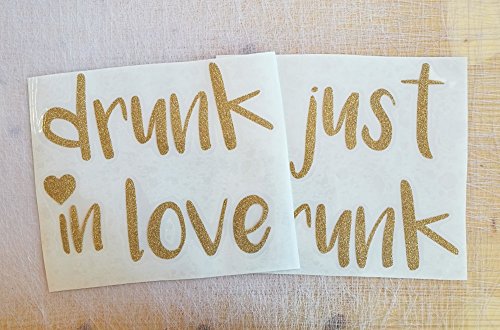 drunk
in love
just
runk